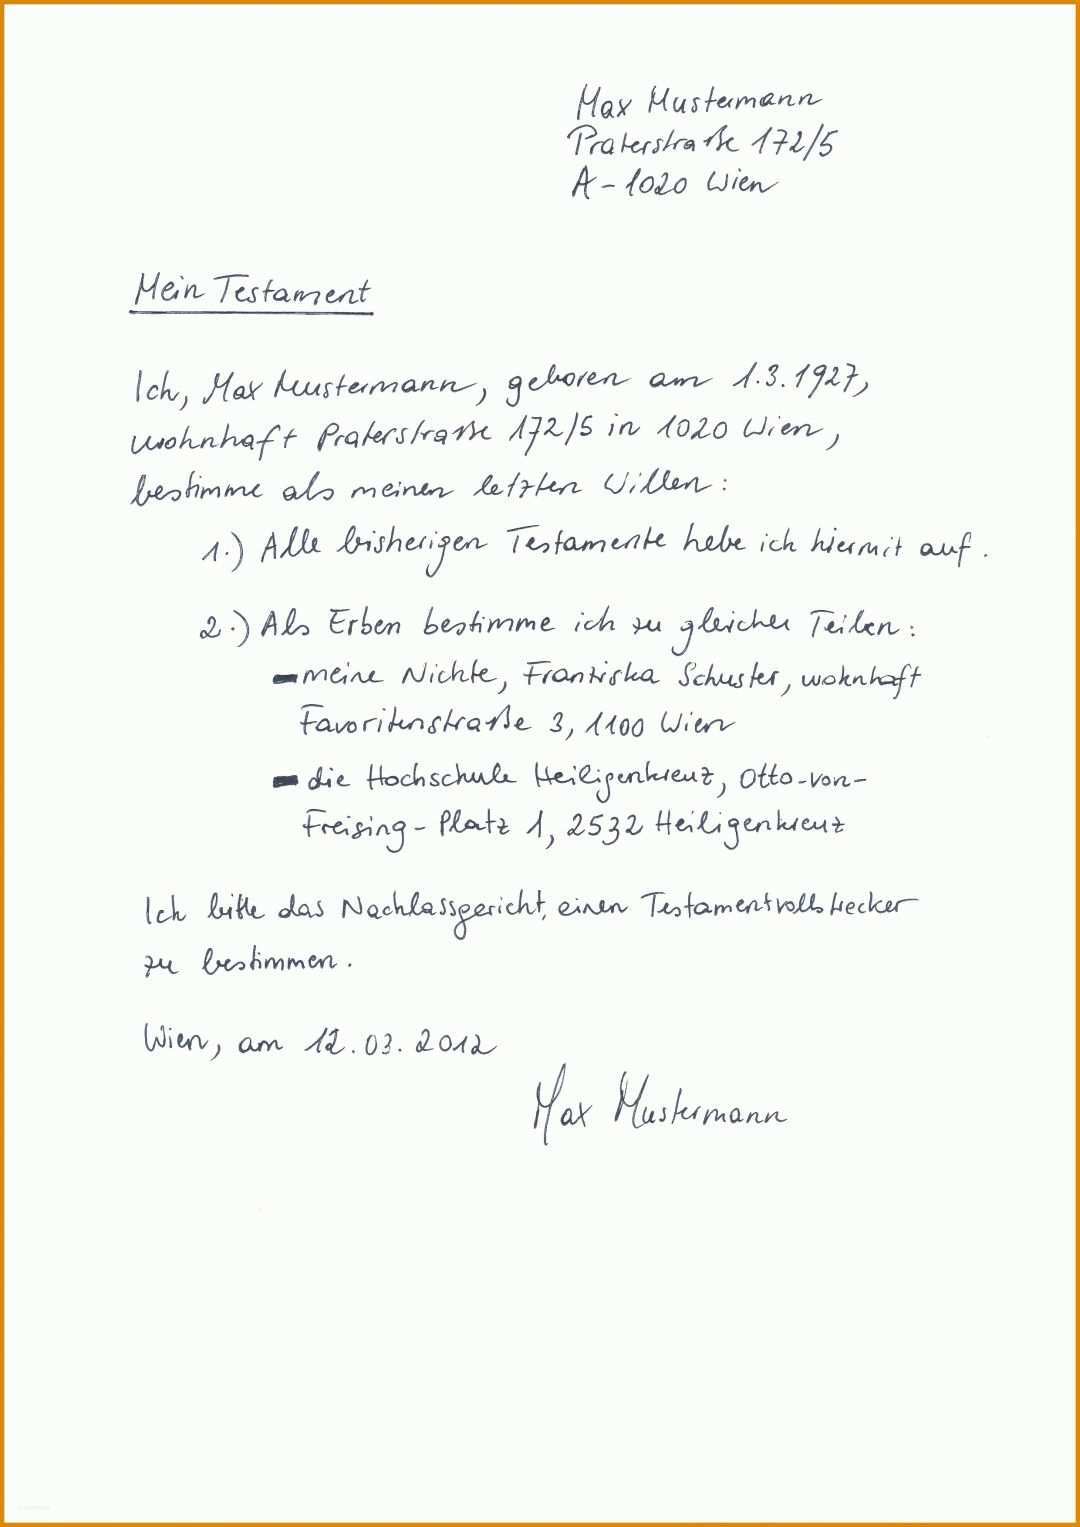 Max Mustermann
Praterstraße 172/5
A-1020 Wien
Mein Testament
Ich, Max Mustermann, geboren am 1.3.1927,
wohnhaft Praterstraße 172/5 in 1020 Wien,
bestimme als meinen letzten Willen:
1.) Alle bisherigen Testamente hebe ich hiermit auf.
2.) Als Erben bestimme ich zu gleichen Teilen:
- meine Nichte, Franziska Schuster, wohnhaft
Favoritenstraße 3, 1100 Wien
- die Hochschule Heiligenkreuz, Otto-von-
Freising-Platz 1, 2532 Heiligenkreuz
Ich bitte das Nachlassgericht, einen Testamentvollstrecker
zu bestimmen.
Wien, am 12.03.2012
Max Mustermann